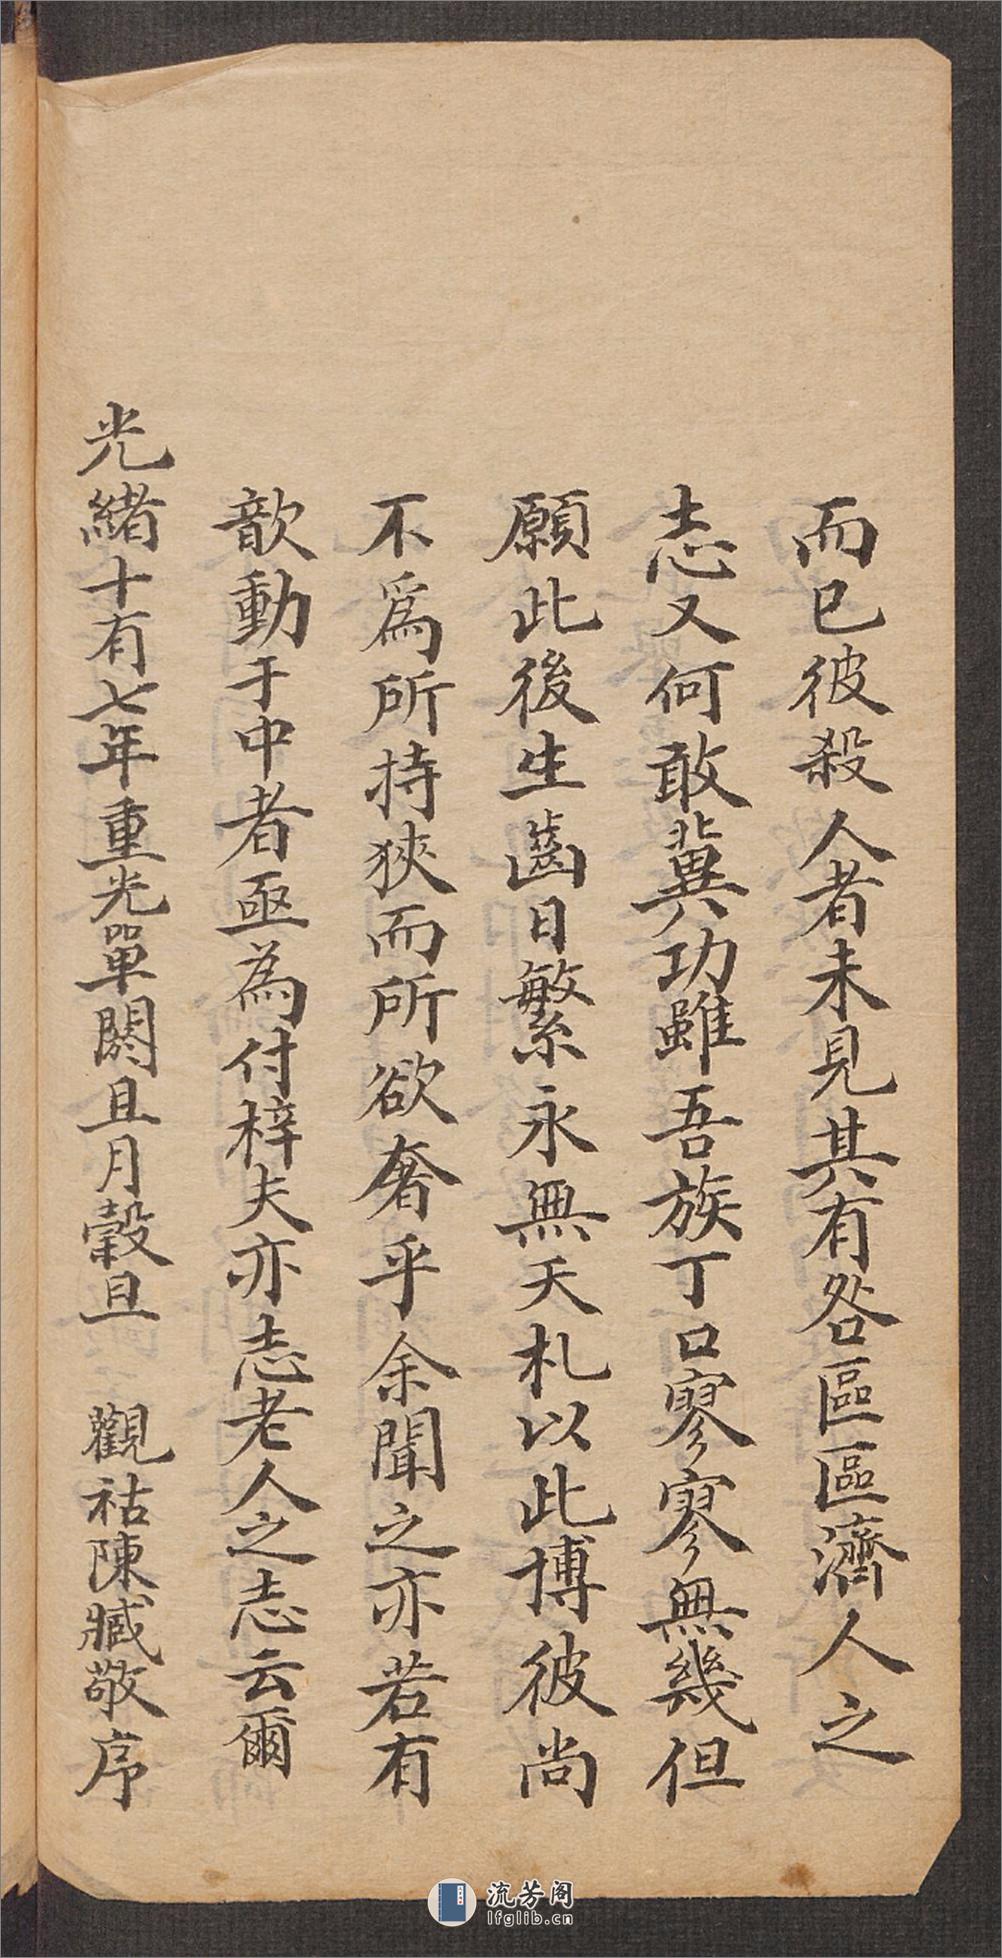 而已彼殺人者未見其有咎區區濟人之
志又何敢冀功雖吾族丁口寥寥無幾但
願此後生齒日繁永無夭札以此博彼尚
不爲所持狹而所欲奢乎余聞之亦若有
歆動于中者亟為付梓夫亦志老人之志云爾
光緒十有七年重光單閼且月穀旦 觀祜陳臧敬序
流芳阁
lfglib.cn